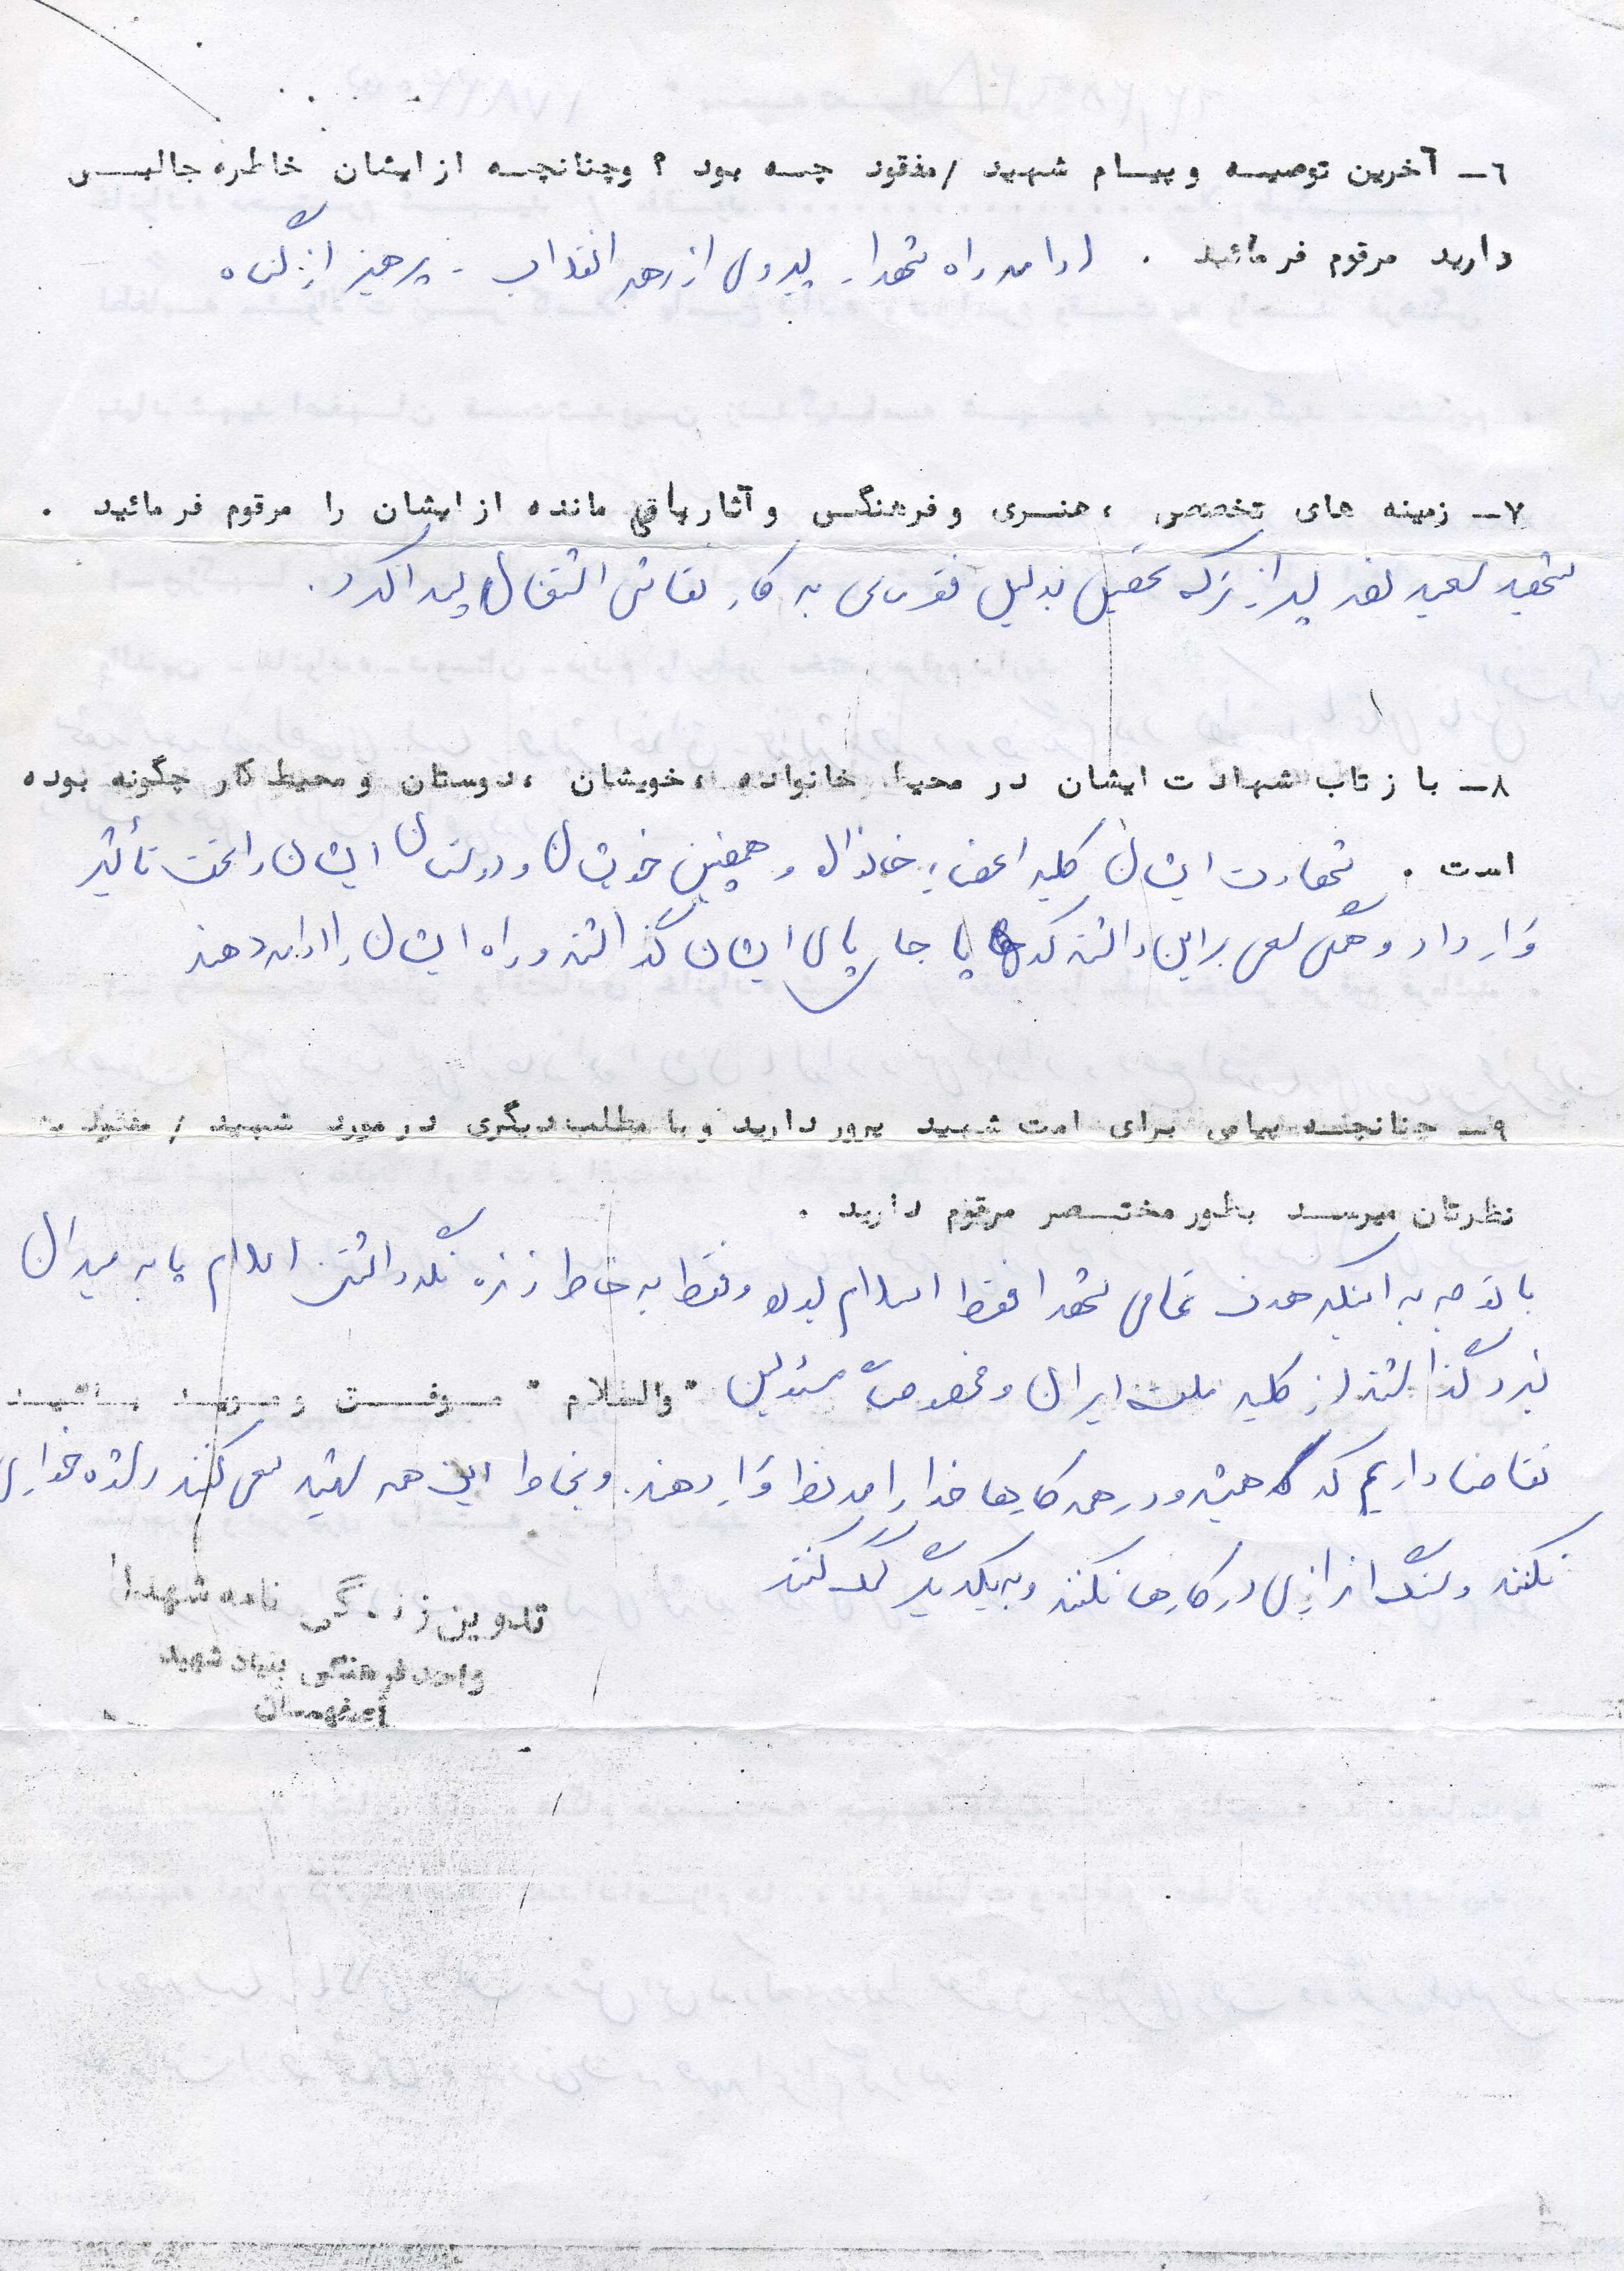 ٦ـ آخرین توصیه و پیام شهید / مفقود چه بود ؟ وچنانچه از ایشان خاطره جالبی
دارید مرقوم فرمائید . ادامه راه شهدا - پیروی از رهبر انقلاب - پرهیز از گناه
٧ـ زمینه های تخصصی ، هنری و فرهنگی و آثار باقی مانده از ایشان را مرقوم فرمائید .
شهید سعید بعد از ترک تحصیل بدلیل فقر مالی به کار نقاشی اشتغال پیدا کرد .
٨ـ باز تاب شهادت ایشان در محیط خانواده ، خویشان ، دوستان و محیط کار چگونه بوده
است . شهادت ایشان کلیه اعضاء خانواده و همچنین خویشان و دوستان ایشان را تحت تأثیر
قرار داد و همگی سعی براین داشتند که پا جا پای ایشان گذاشته و راه ایشان را ادامه دهند
٩ـ چنانچه پیامی برای امت شهید پرور دارید و یا مطلب دیگری در مورد شهید / مفقود به
نظرتان میرسد بطور مختصر مرقوم دارید .
با توجه به اینکه هدف تمامی شهدا فقط اسلام بوده و فقط به خاطر زنده نگه داشتن اسلام پا به میدان
نبرد گذاشتند از کلیه ملت ایران و مخصوصاً مسئولین " والسلام " موفق و موید باشید
تقاضا داریم که همیشه و در همه کارها خدا را مد نظر قرار دهند . و بخاطر این همه شهید سعی کنند رشوه خواری
نکنند و سنگ اندازی در کارها نکنند و به یکدیگر کمک کنند
تدوین زندگی نامه شهدا
واحد فرهنگی بنیاد شهید
اصفهان